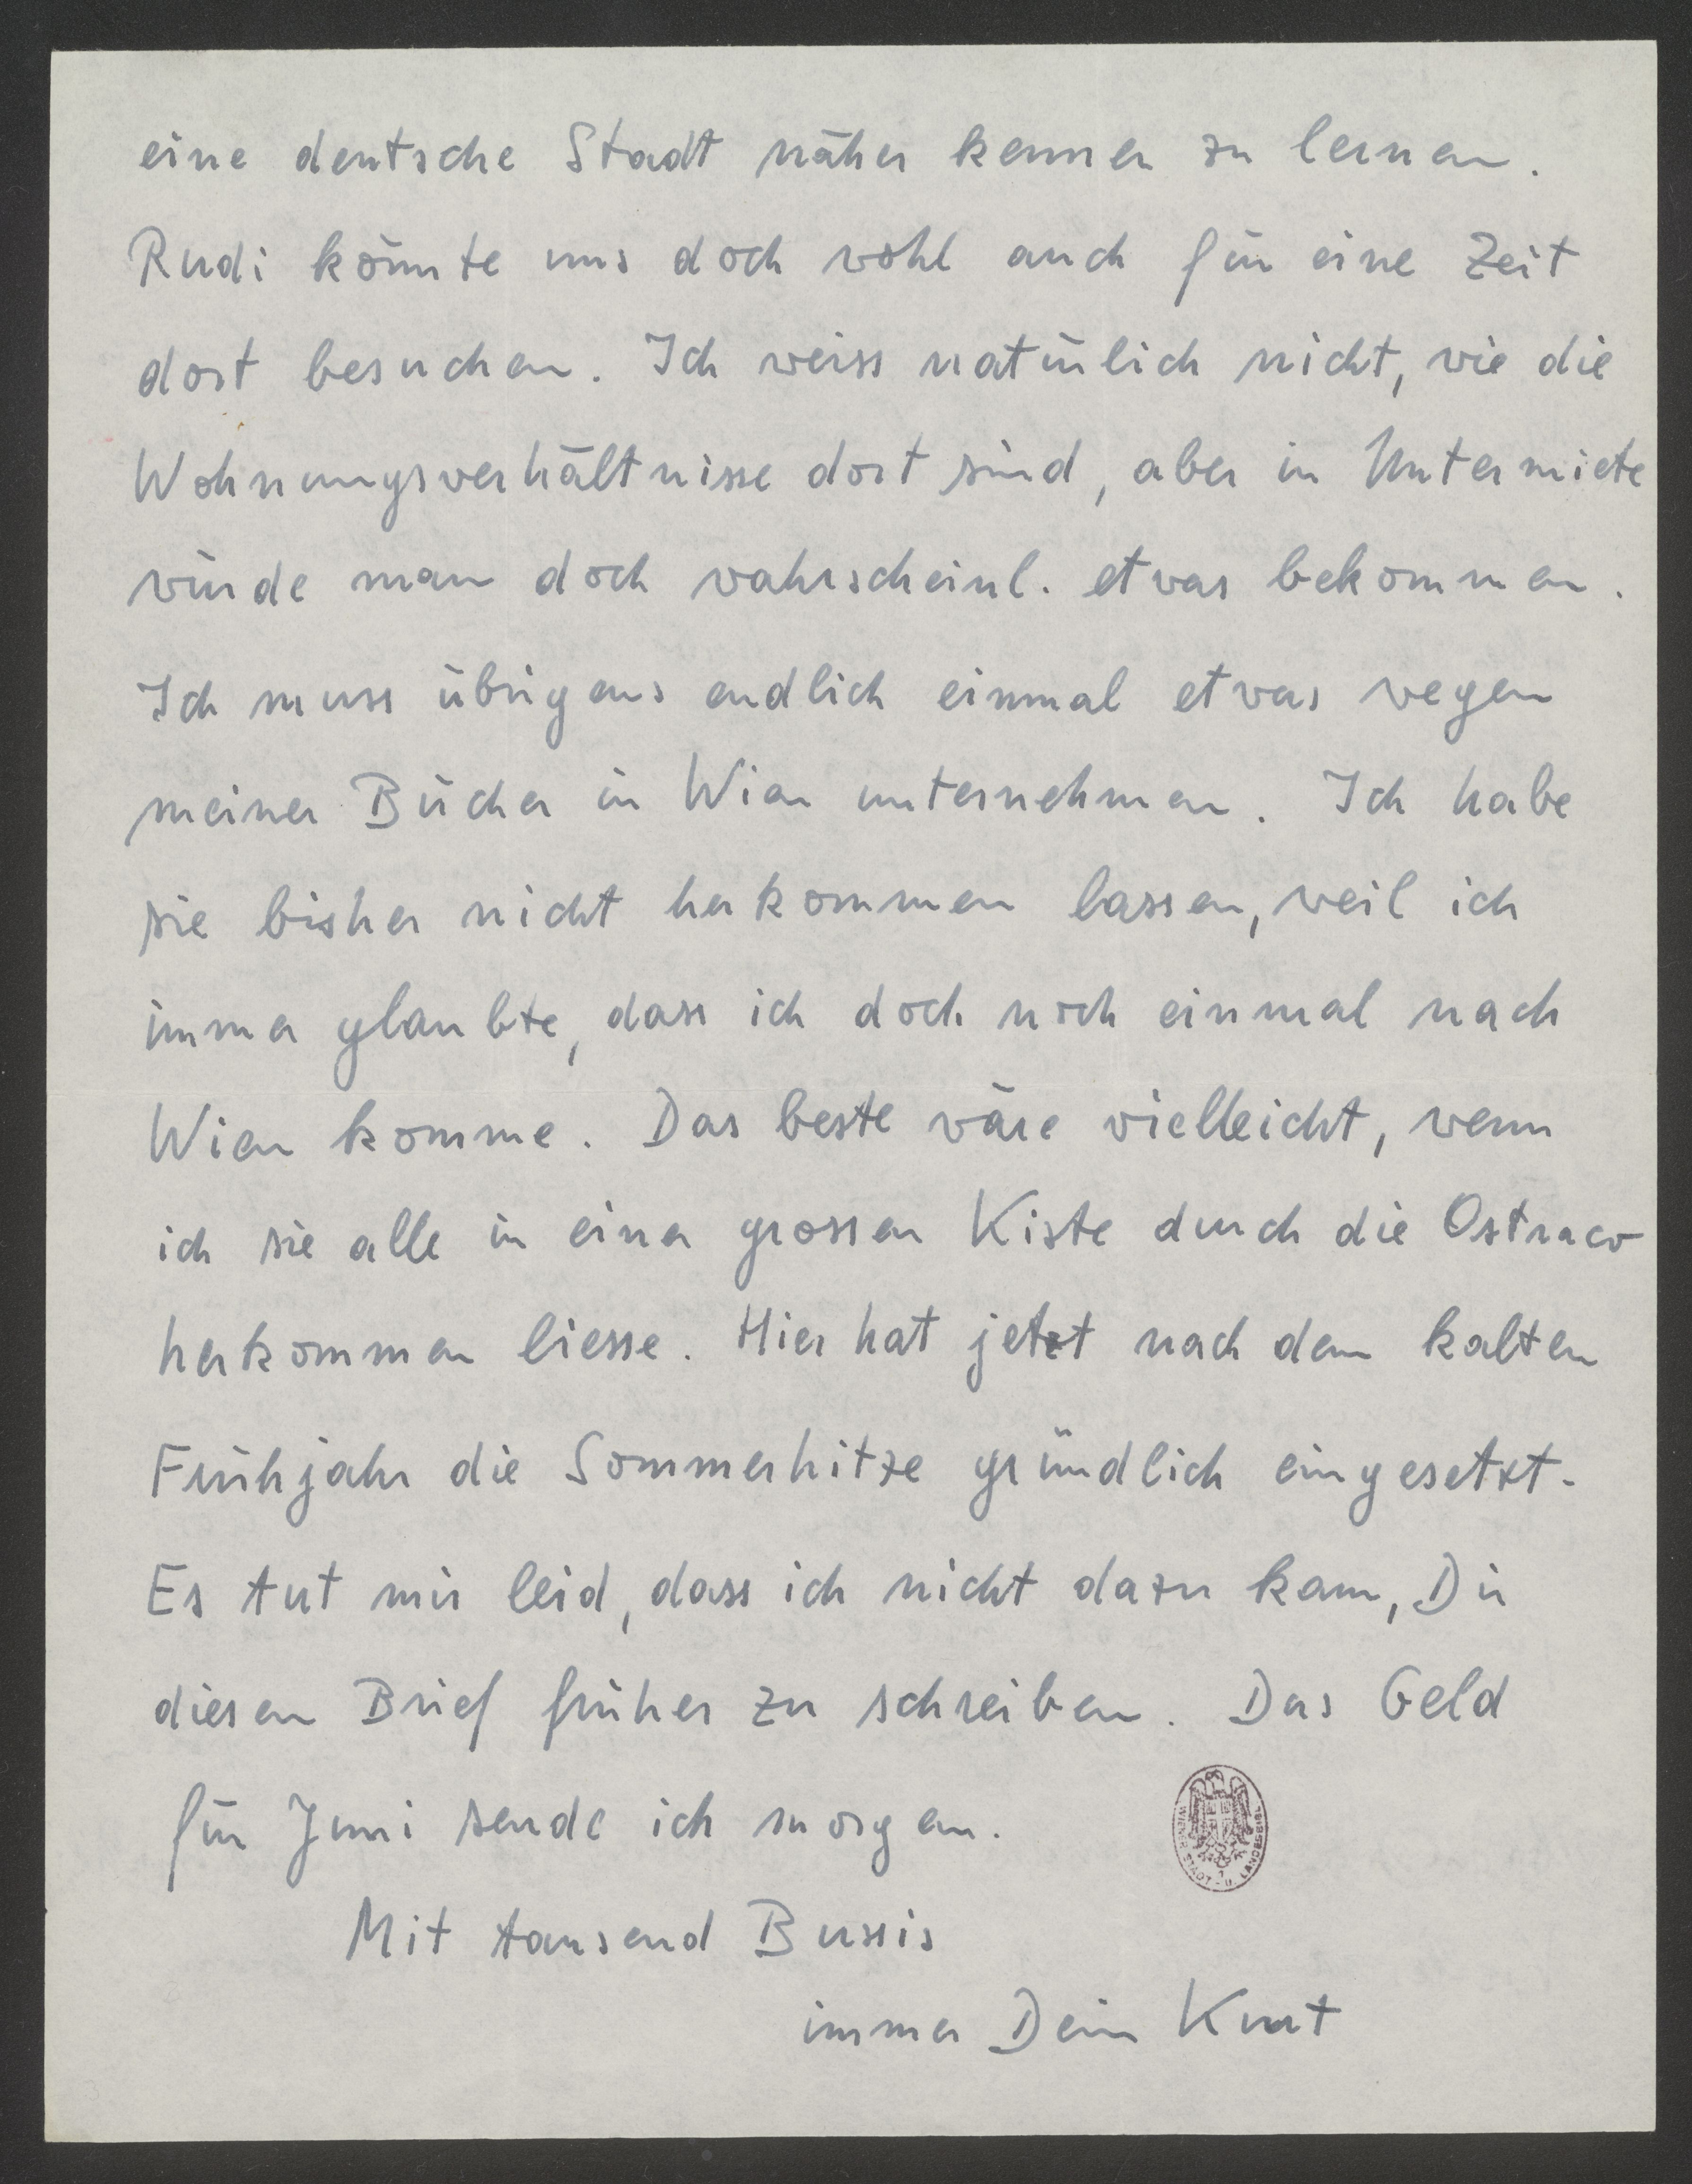 eine deutsche Stadt näher kennen zu lernen.
Rudi könnte uns doch wohl auch für eine Zeit
dort besuchen. Ich weiss natürlich nicht, wie die
Wohnungsverhältnisse dort sind, aber in Untermiete
würde man doch wahrscheinl. etwas bekommen.
Ich muss übrigens endlich einmal etwas wegen
meiner Bücher in Wien unternehmen. Ich habe
sie bisher nicht herkommen lassen, weil ich
immer glaubte, dass ich doch noch einmal nach
Wien komme. Das beste wäre vielleicht, wenn
ich sie alle in einer grossen Kiste durch die Ostraco
herkommen liesse. Hier hat jetzt nach dem kalten
Frühjahr die Sommerhitze gründlich eingesetzt.
Es tut mir leid, dass ich nicht dazu kam, Dir
diesen Brief früher zu schreiben. Das Geld
für Juni sende ich morgen.
WIENER STADT- U. LANDESBIBL.
Mit tausend Bussis
immer Dein Kurt